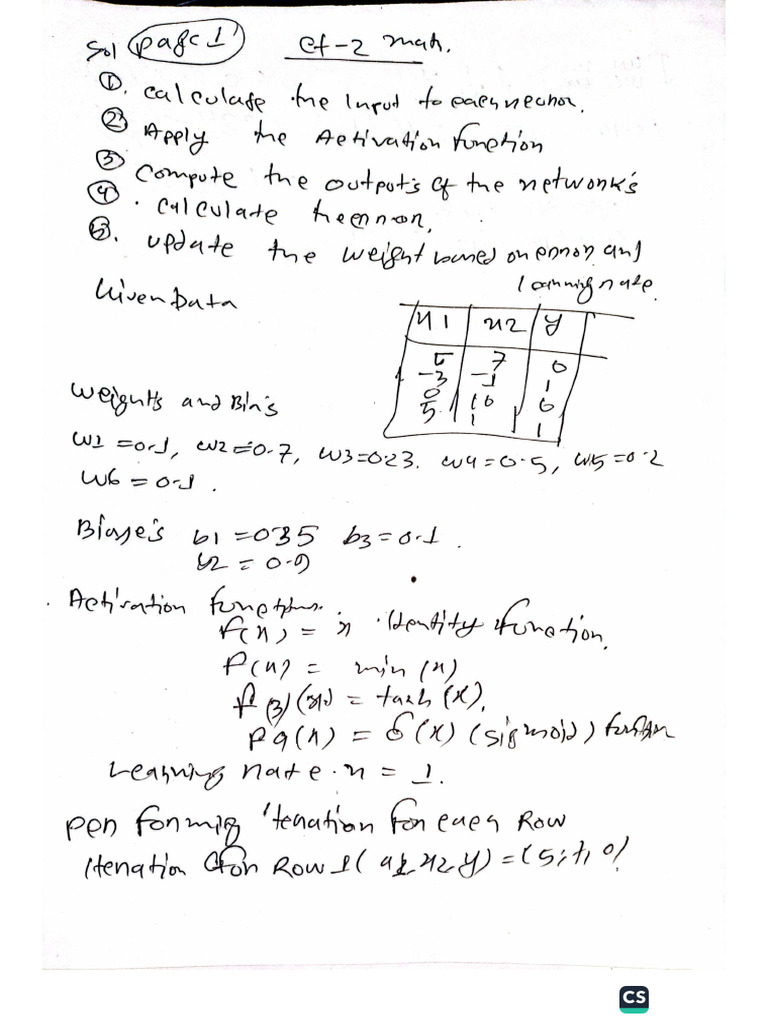 Sol page 1 ct-2 math.
①. calculate the Input to each neuron.
② Apply the Activation function
③ Compute the outputs of the network's
④ . calculate the error.
⑤. update the weight based on error and
learning rate.
Given Data
x1 x2 y
5 7 0
-3 -1 1
0 10 0
5 1 1
Weights and Bias
w1 = 0.1, w2 = 0.7, w3 = 0.23. w4 = 0.5, w5 = 0.2
w6 = 0.1.
Biase's b1 = 035 b3 = 0.1.
b2 = 0.9
Activation functions.
f(x) = x Identity function.
f(x) = min (x)
f(3)(x) = tanh (x).
f4(x) = σ(x) (sigmoid) function
Learning rate. n = 1.
Performing Iteration for each Row
Iteration for Row 1 (x1, x2 y) = (5, 7, 0)
CS